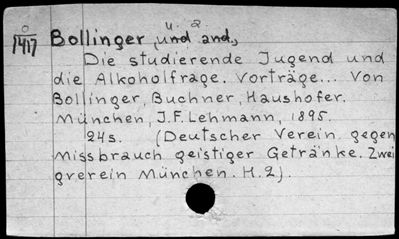 O
1417
Bollinger, u. a.
und and.,
Die studierende Jugend und
die Alkoholfrage. Vorträge... Von
Bollinger, Buchner, Haushofer.
München, J.F. Lehmann, 1895.
24s. (Deutscher Verein gegen
Missbrauch geistiger Getränke. Zwei
gverein München. H.2).